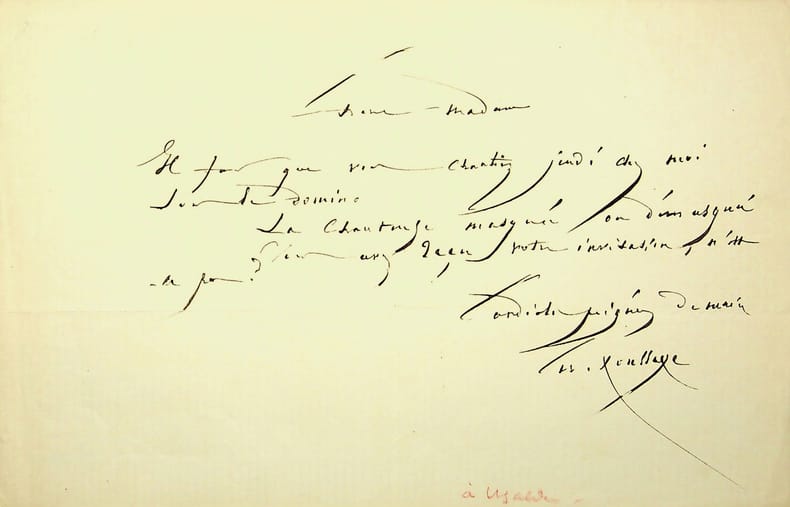 Chère madame
Il faut que vous chantiez jeudi chez moi
sous le domino
La chanteuse masquée ou démasquée
Vous avez reçu votre invitation, n'est
-ce pas?
Cordiale poignée de main
Ar. Houssaye
à Ugalde